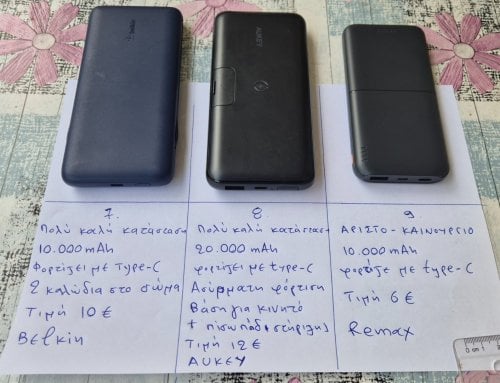 belkin
AUKEY
7.
Πολύ καλή κατάσταση
10.000 mAh
Φορτίζει με Type-C
2 καλώδια στο σώμα
Τιμή 10 €
Belkin
8
Πολύ καλή κατάσταση
20.000 mAh
φορτίζει με type-C
Ασύρματη φόρτιση
Βάση για κινητό
+ πίσω πόδι στήριξης
Τιμή 12 €
AUKEY
9
ΑΡΙΣΤΟ - ΚΑΙΝΟΥΡΓΙΟ
10.000 mAh
φορτίζε με type-C
Τιμή 6 €
Remax
0 cm 1